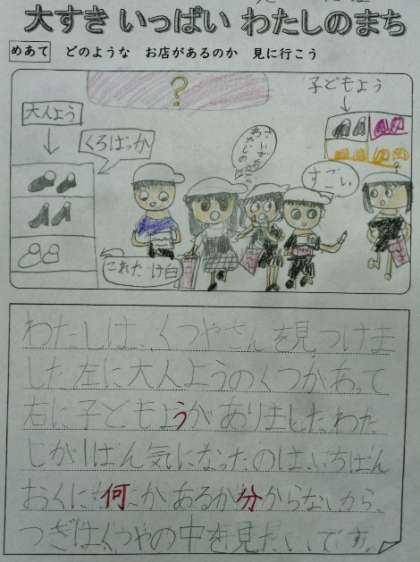 大すき いっぱい わたしのまち
めあて どのような お店があるのか 見に行こう
?
子どもよう
大人よう
くろばっか
すごい
これだけ白
わたしは、くつやさんを見つけま
した左に大人ようのくつがあって
右に子どもようがありました。わた
しがいちばん気になったのは、いちばん
おくに何があるか分からないから、
つぎはくつやの中を見たいです。